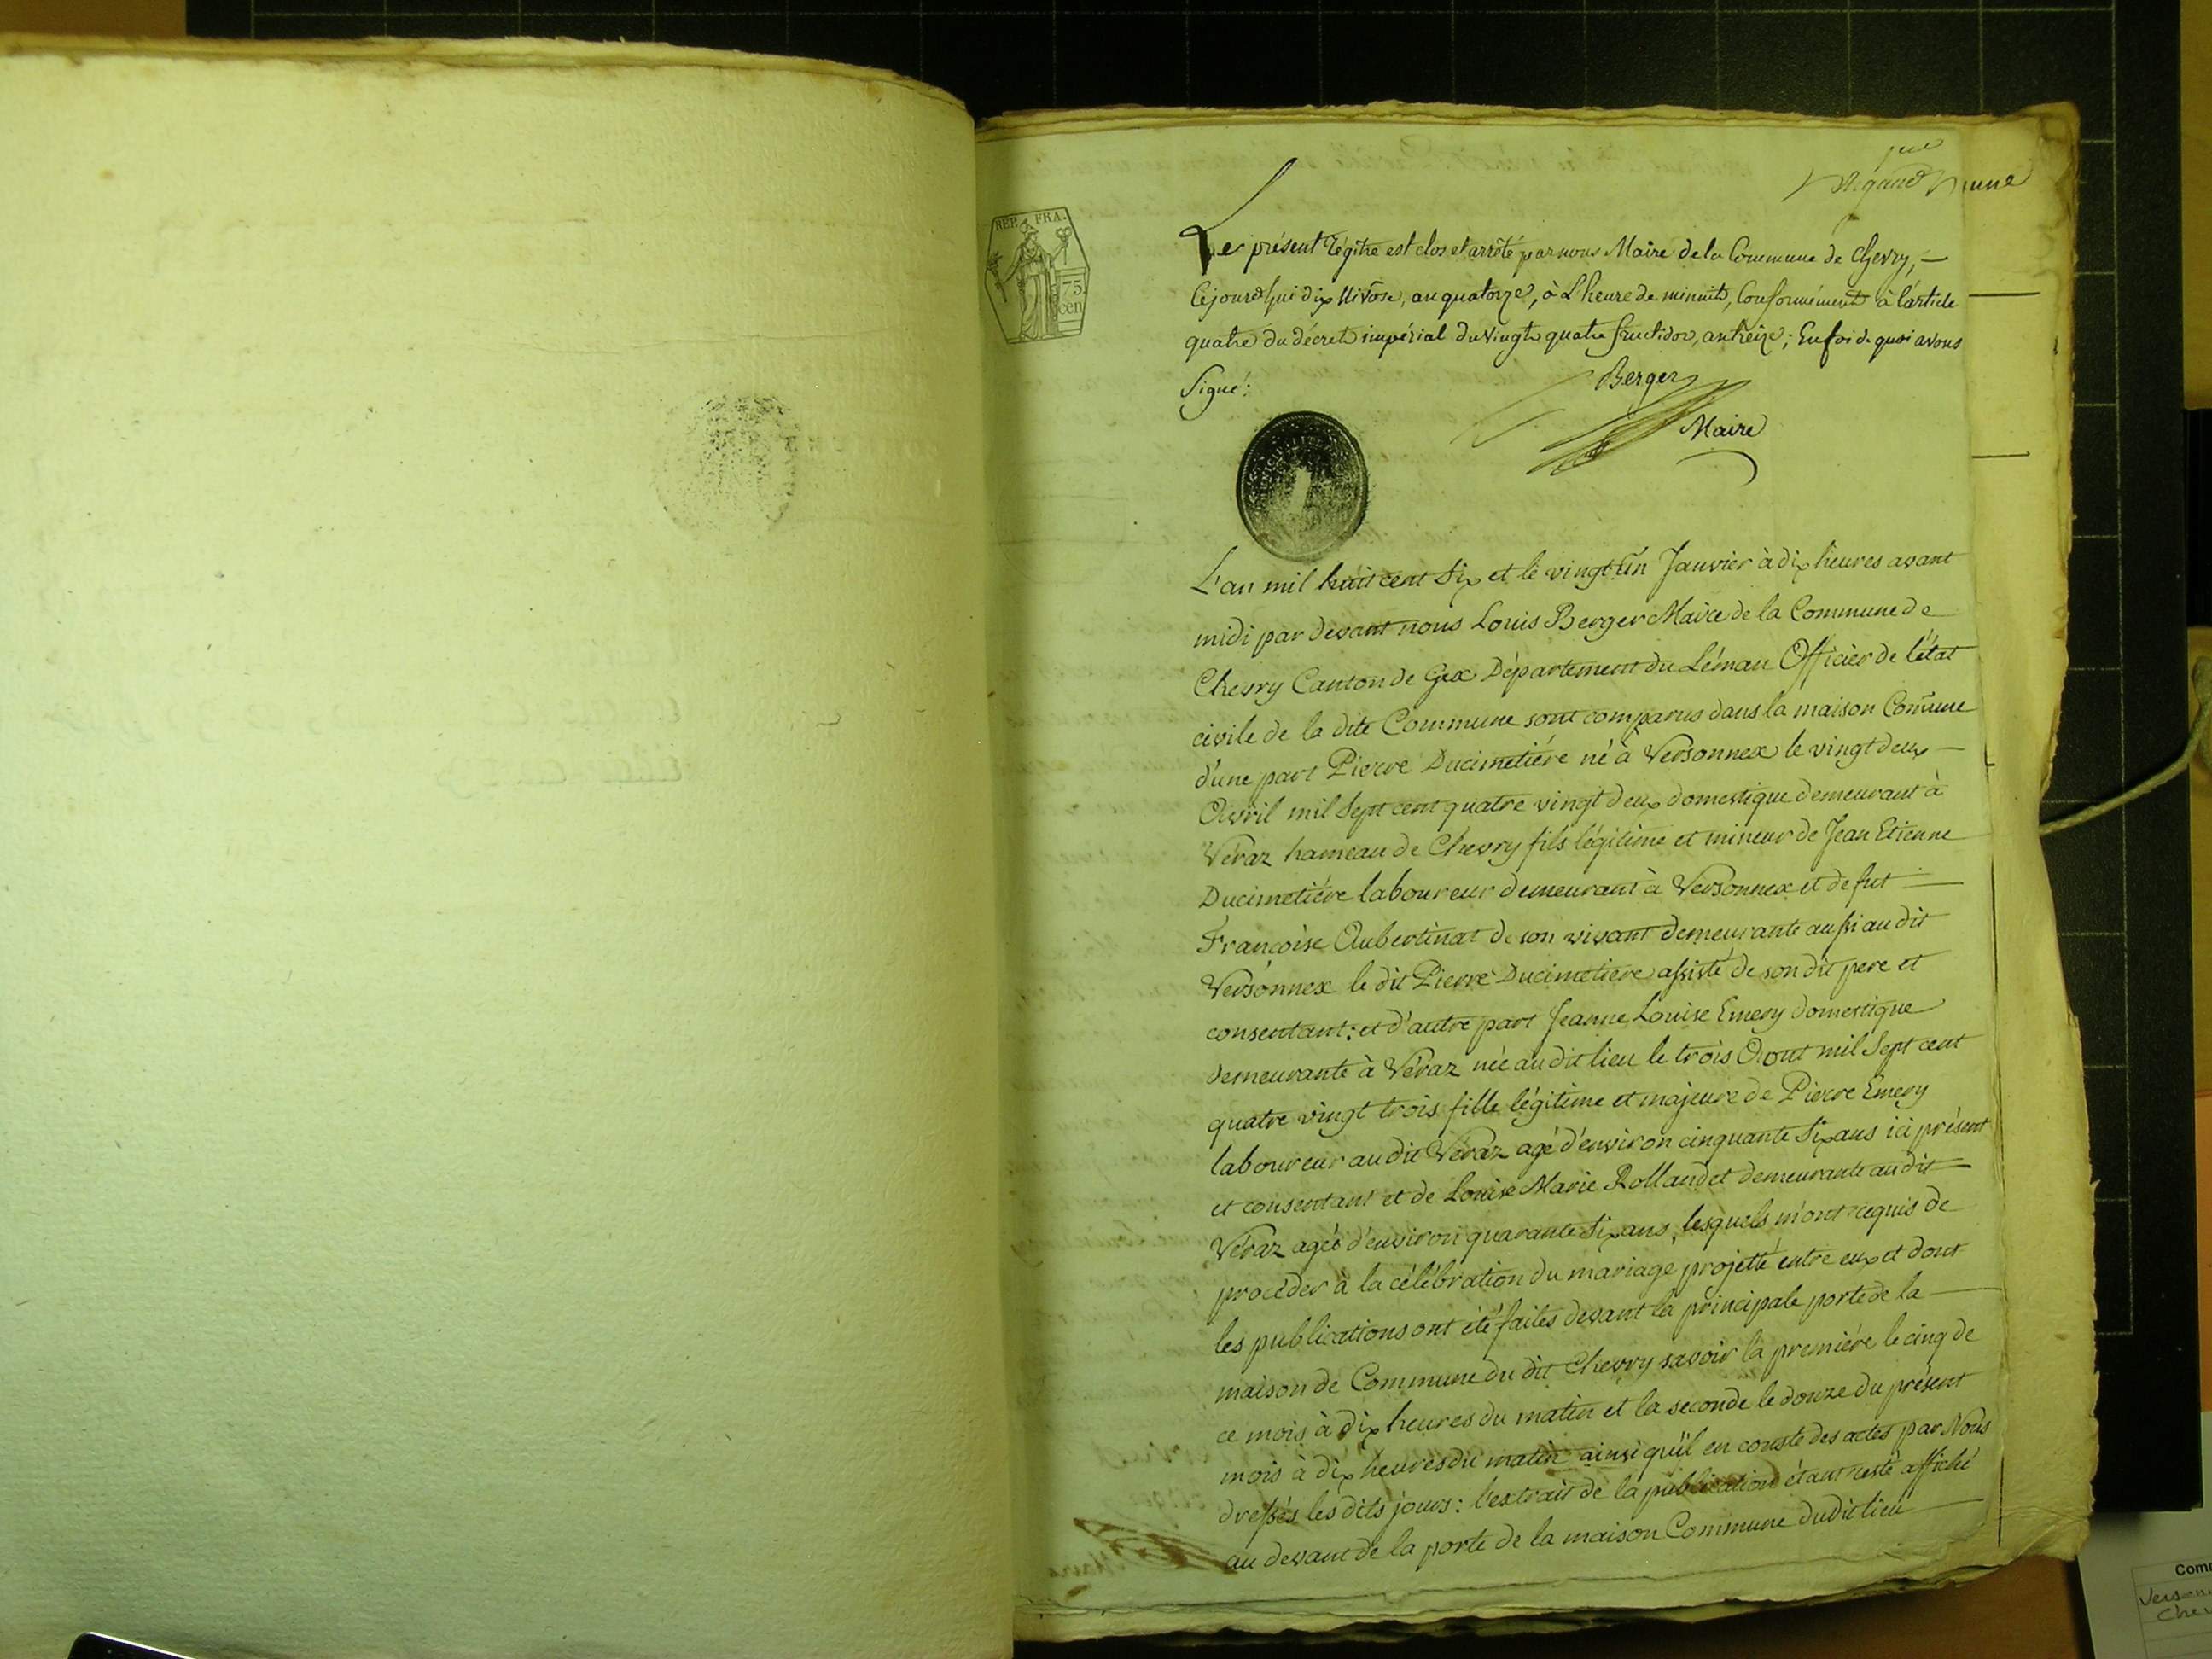 REP. FRA.
75.
cen
Le présent régitre est clos et arrêté par nous Maire de la Commune de Chevry, —
Cejourd'hui dix Nivôse, an quatorze, à L'heure de minuit, Conformément à l'article
quatre du décret impérial du vingt quatre fructidor, an treize; En foi de quoi avons
Signé:
Berger
Maire
L'an mil huit cent Six et le vingt un Janvier à dix heures avant
midi par devant nous Louis Berger Maire de la Commune de
Chevry Canton de Gex Département du Léman Officier de l'état
civile de la dite Commune sont comparus dans la maison Comune
d'une part Pierre Ducimetiére né à Versonnex le vingt deux —
Avril mil Sept cent quatre vingt deux domestique demeurant à
Véraz hameau de Chevry fils légitime et mineur de Jean Etienne
Ducimetiére laboureur demeurant à Versonnex et de fut —
Françoise Aubertinat de son vivant demeurante aussi au dit
Versonnex le dit Pierre Ducimetiere assisté de son dit pere et
consentant: et d'autre part Jeanne Louise Emery domestique
demeurante à Véraz née au dit lieu le trois Aout mil Sept cent
quatre vingt trois fille légitime et majeure de Pierre Emery
laboureur au dit Véraz agé d'environ cinquante Six ans ici présent
et consentant et de Louise Marie Rollandet demeurante au dit —
Véraz agée d'environ quarante Six ans, lesquels m'ont requis de
procéder à la célébration du mariage projetté entre eux et dont
les publications ont été faites devant la principale porte de la —
maison de Commune du dit Chevry savoir la premiére le cinq de
ce mois à dix heures du matin et la seconde le douze du présent
mois à dix heures du matin ainsi qu'il en conste des actes par Nous
dressés les dits jours: l'extrait de la publication étant resté affiché
au devant de la porte de la maison Commune dudit lieu —